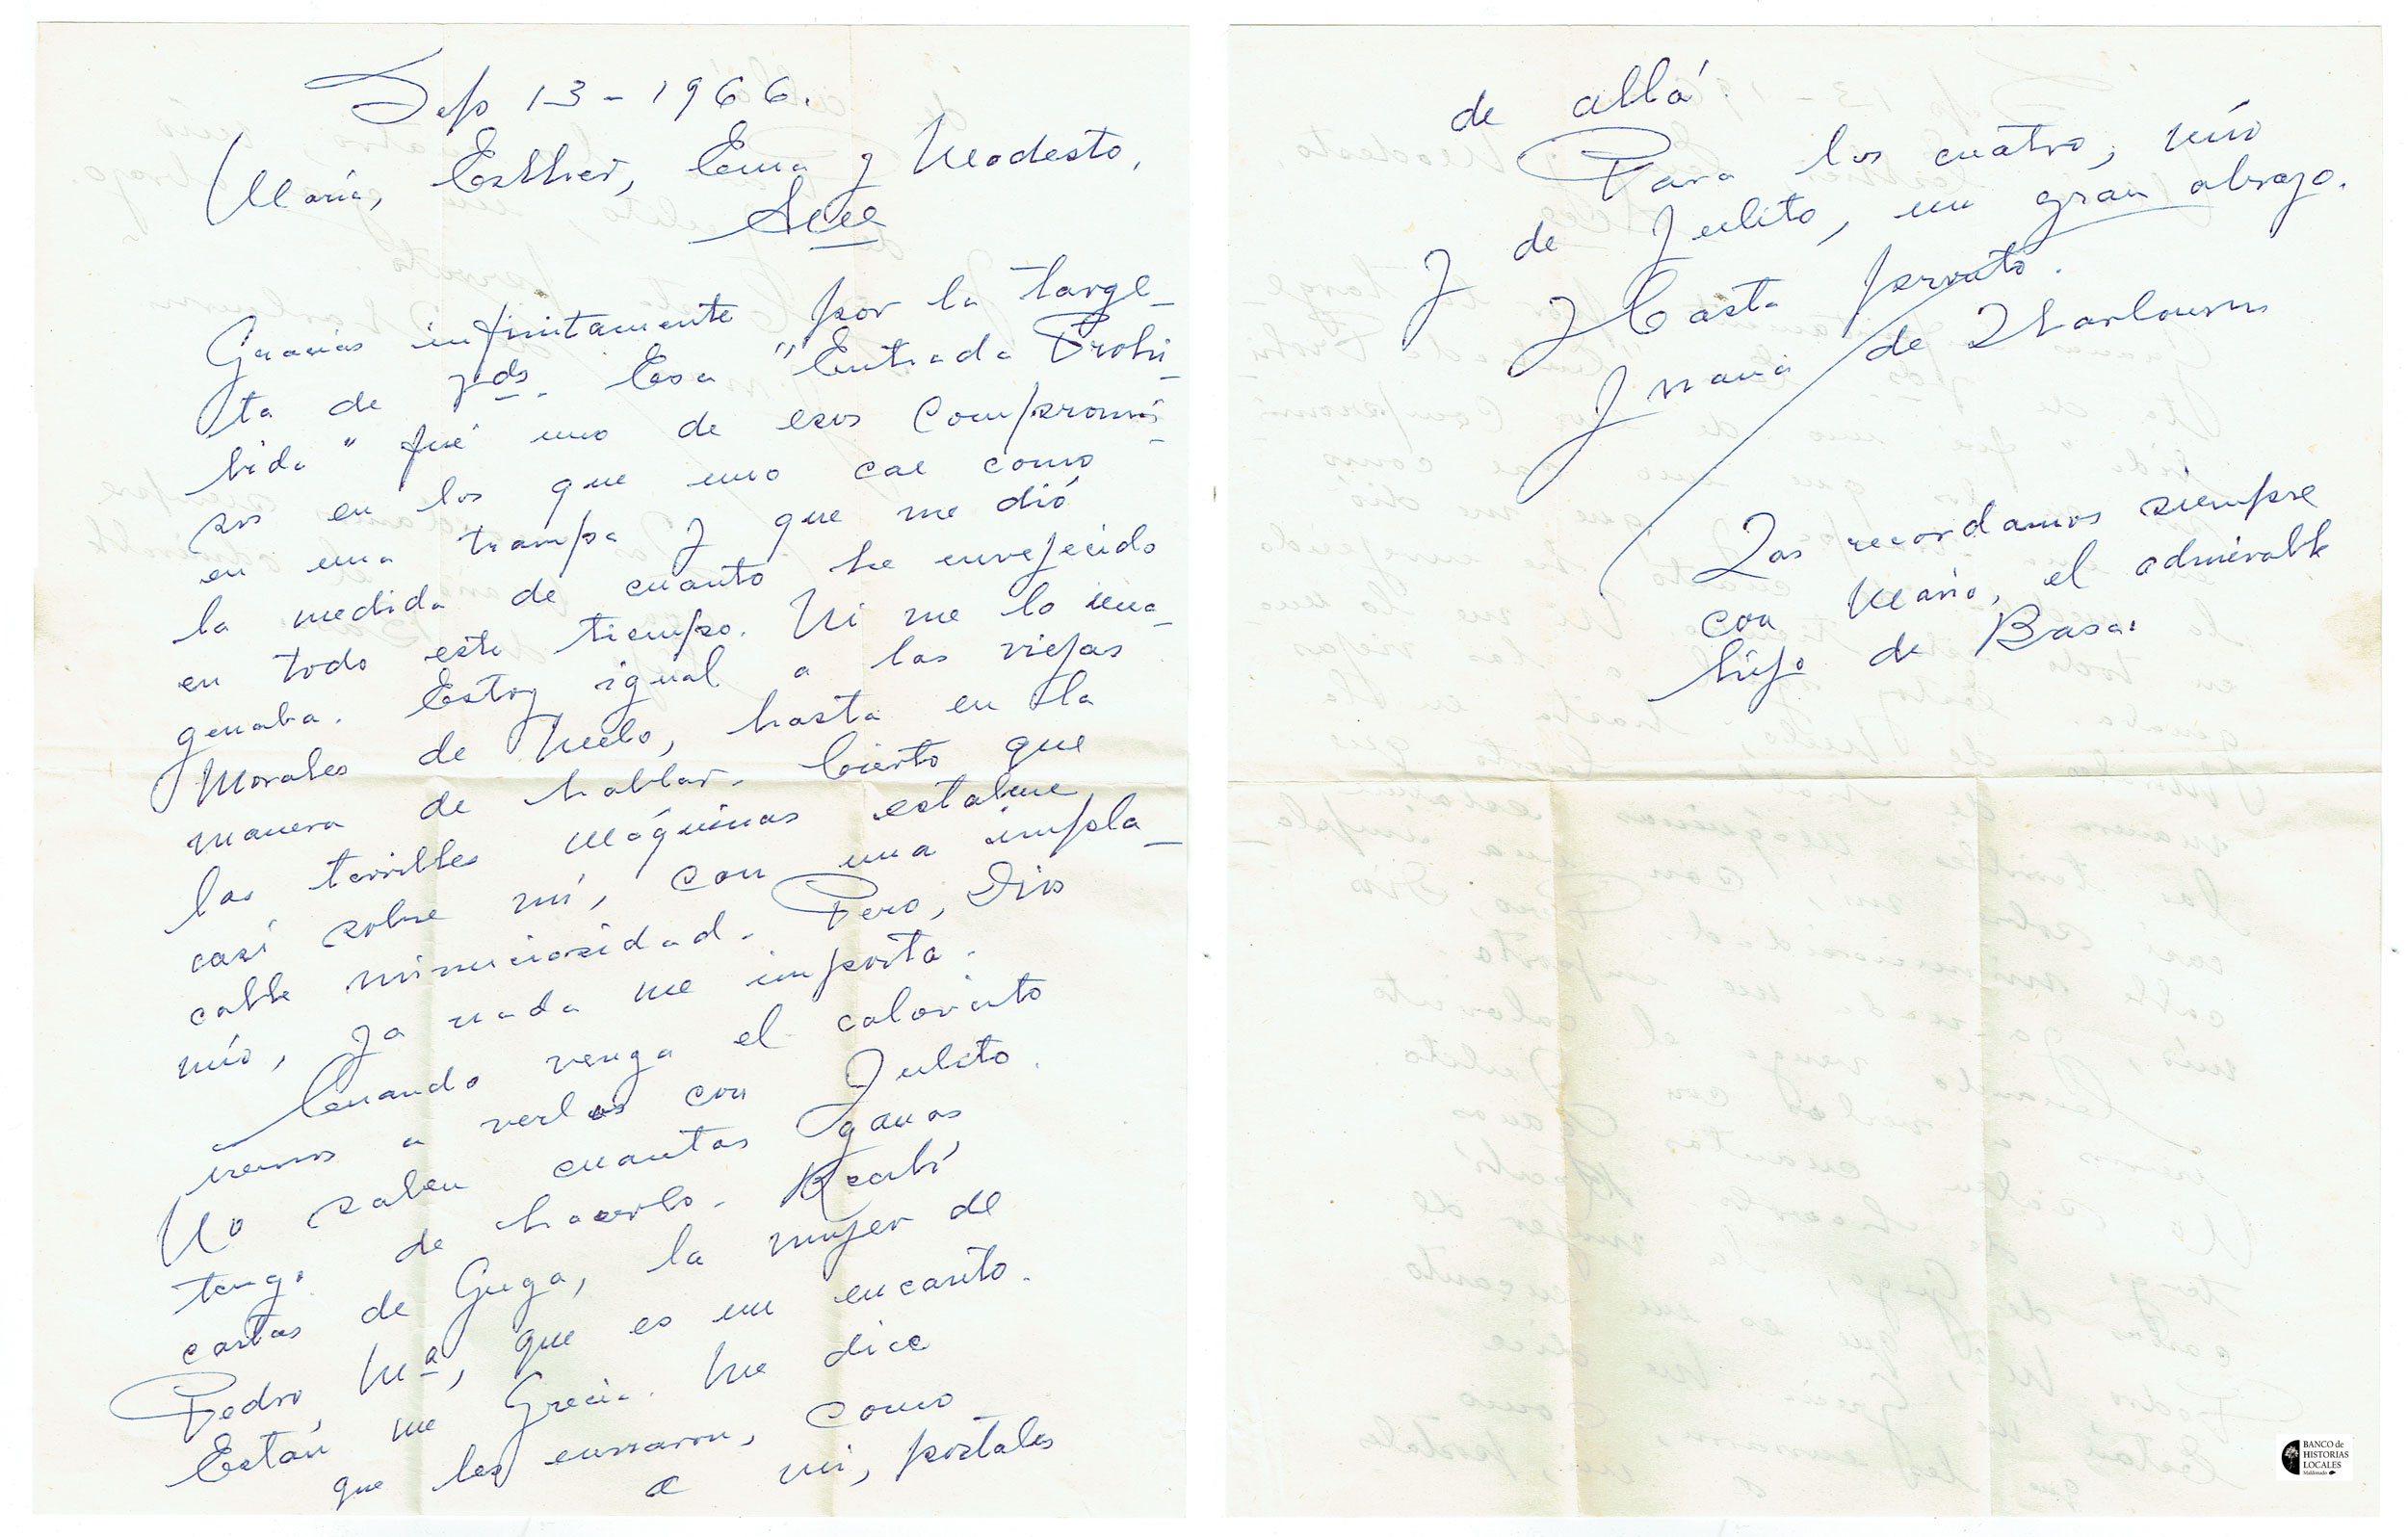 Sep 13 - 1966.
María, Esther, Ema y Modesto,
Gracias infinitamente por la targe_
ta de Vds. Esa "Entrada Prohi_
bida" fué uno de esos compromi_
sos en los que uno cae como
en una trampa y que me dió
la medida de cuanto he envejecido
en todo este tiempo. Ni me lo ima_
genaba. Estoy igual a las viejas
Morales de Melo, hasta en la
manera de hablar. Cierto que
las terribles máquinas estabme
casi sobre mí, con una impla_
cable minuciosidad. Pero, Dios
mío, ya nada me importa.
Cuando venga el calorcito
iremos a verlos con Julito.
No saben cuantas ganas
tengo de hacerlo. Recibí
cartas de Guga, la mujer de
Pedro, Mª, que es un encanto.
Están en Grecia. Me dice
que les enviaron, como
a mí, postales
de allá.
Para los cuatro, mío
y de Julito, un gran abrazo.
Hasta prontito.
Juana de Ibarbourou
Los recordamos siempre
con Mario, el admirable
hijo de Basa.
BANCO de
HISTORIAS
LOCALES
Maldonado